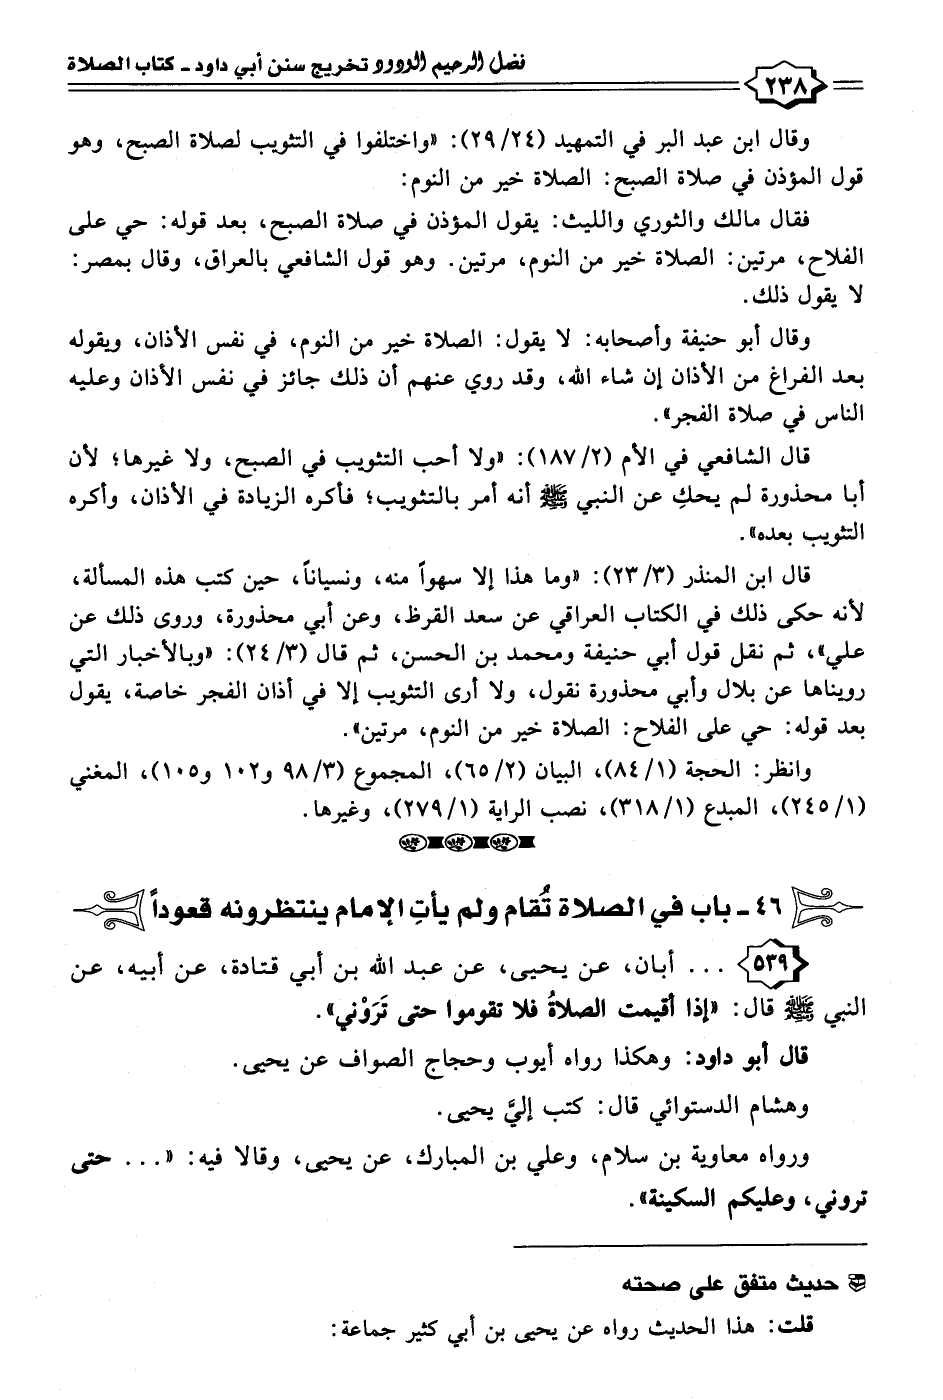 فضل الرحيم الودود تخريج سنن أبي داود - كتاب الصلاة
٢٣٨
وقال ابن عبد البر في التمهيد (٢٩/٢٤): «واختلفوا في التثويب لصلاة الصبح، وهو
قول المؤذن في صلاة الصبح: الصلاة خير من النوم:
فقال مالك والثوري والليث: يقول المؤذن في صلاة الصبح، بعد قوله: حي على
الفلاح، مرتين: الصلاة خير من النوم، مرتين. وهو قول الشافعي بالعراق، وقال بمصر:
لا يقول ذلك.
وقال أبو حنيفة وأصحابه: لا يقول: الصلاة خير من النوم، في نفس الأذان، ويقوله
بعد الفراغ من الأذان إن شاء الله، وقد روي عنهم أن ذلك جائز في نفس الأذان وعليه
الناس في صلاة الفجر».
قال الشافعي في الأم (١٨٧/٢): «ولا أحب التثويب في الصبح، ولا غيرها؛ لأن
أبا محذورة لم يحكِ عن النبي ﷺ أنه أمر بالتثويب؛ فأكره الزيادة في الأذان، وأكره
التثويب بعده».
قال ابن المنذر (٢٣/٣): «وما هذا إلا سهواً منه، ونسياناً، حين كتب هذه المسألة،
لأنه حكى ذلك في الكتاب العراقي عن سعد القرظ، وعن أبي محذورة، وروى ذلك عن
علي»، ثم نقل قول أبي حنيفة ومحمد بن الحسن، ثم قال (٢٤/٣): «وبالأخبار التي
رويناها عن بلال وأبي محذورة نقول، ولا أرى التثويب إلا في أذان الفجر خاصة، يقول
بعد قوله: حي على الفلاح: الصلاة خير من النوم، مرتين».
وانظر: الحجة (٨٤/١)، البيان (٦٥/٢)، المجموع (٩٨/٣ و١٠٢ و١٠٥)، المغني
(٢٤٥/١)، المبدع (٣١٨/١)، نصب الراية (٢٧٩/١)، وغيرها.
٤٦ - باب في الصلاة تُقام ولم يأتِ الإمام ينتظرونه قعوداً
٥٣٩ ... أبان، عن يحيى، عن عبد الله بن أبي قتادة، عن أبيه، عن
النبي ﷺ قال: «إذا أقيمت الصلاةُ فلا تقوموا حتى تَرَوْني».
قال أبو داود: وهكذا رواه أيوب وحجاج الصواف عن يحيى.
وهشام الدستوائي قال: كتب إليَّ يحيى.
ورواه معاوية بن سلام، وعلي بن المبارك، عن يحيى، وقالا فيه: «... حتى
تروني، وعليكم السكينة».
حديث متفق على صحته
قلت: هذا الحديث رواه عن يحيى بن أبي كثير جماعة: